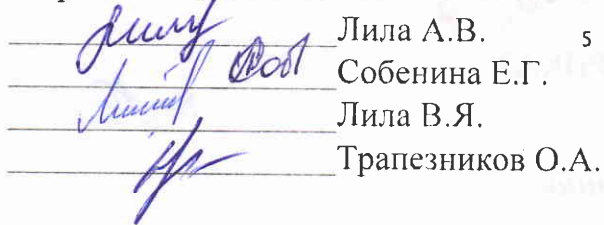 Лила А.В. 5
Собенина Е.Г.
Лила В.Я.
Трапезников О.А.